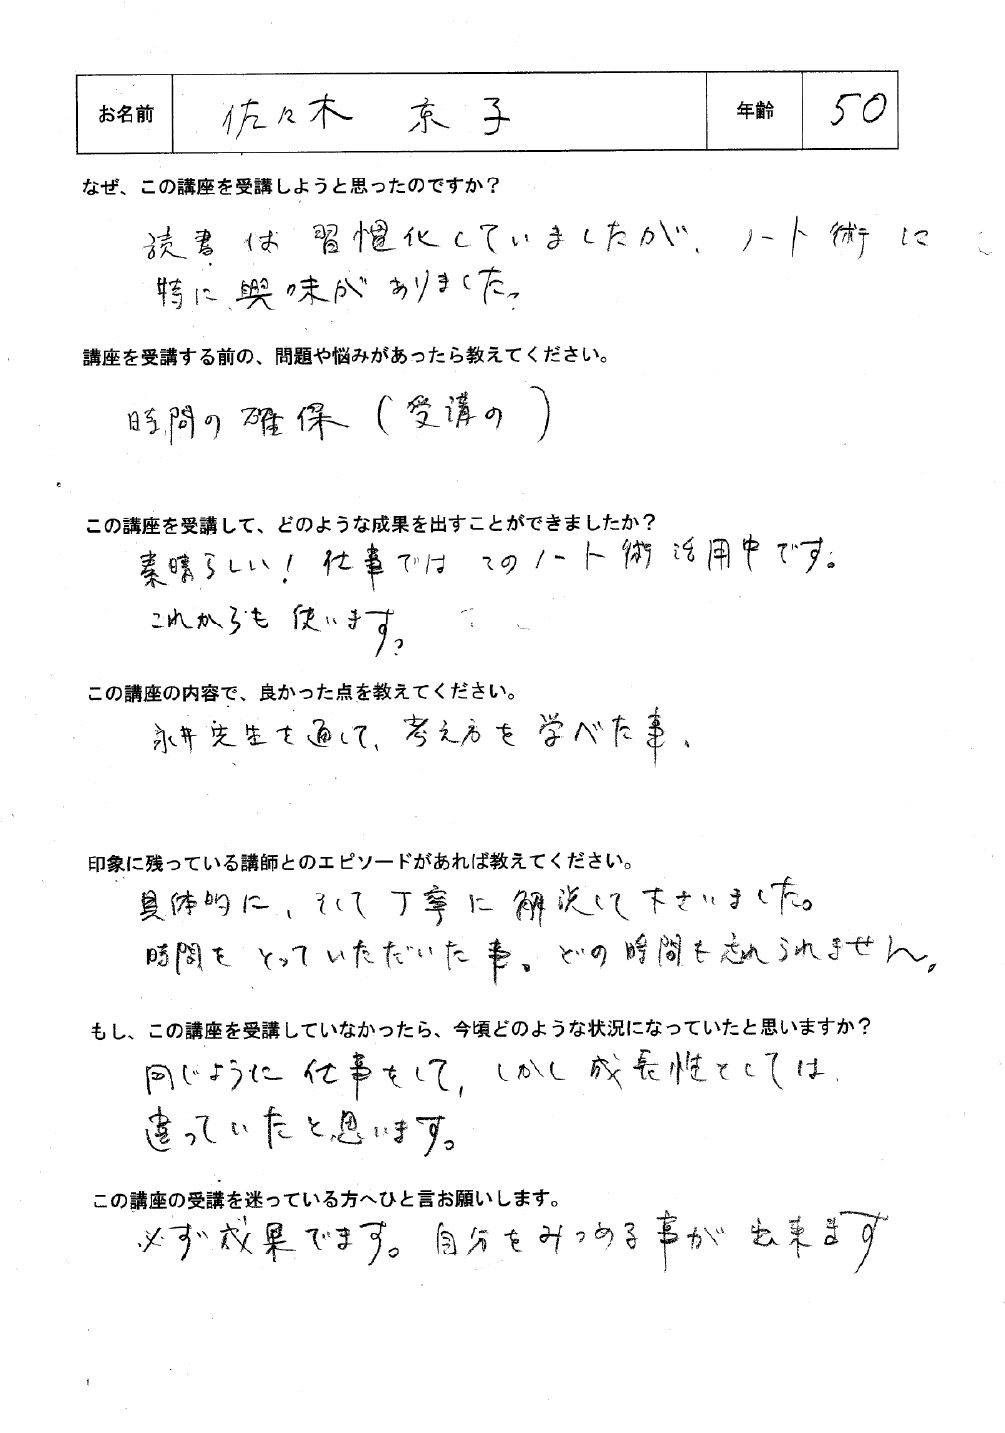 お名前 佐々木 京子 年齢 50
なぜ、この講座を受講しようと思ったのですか？
読書は習慣化していましたが、ノート術に
特に興味がありました。
講座を受講する前の、問題や悩みがあったら教えてください。
時間の確保（受講の）
この講座を受講して、どのような成果を出すことができましたか？
素晴らしい！仕事ではこのノート術活用中です。
これからも使います。
この講座の内容で、良かった点を教えてください。
永井先生を通して、考え方を学べた事、
印象に残っている講師とのエピソードがあれば教えてください。
具体的に、そして丁寧に解説して下さいました。
時間をとっていただいた事。どの時間も忘れられません。
もし、この講座を受講していなかったら、今頃どのような状況になっていたと思いますか？
同じように仕事をして、しかし成長性としては
違っていたと思います。
この講座の受講を迷っている方へひと言お願いします。
必ず成果でます。自分をみつめる事が出来ます